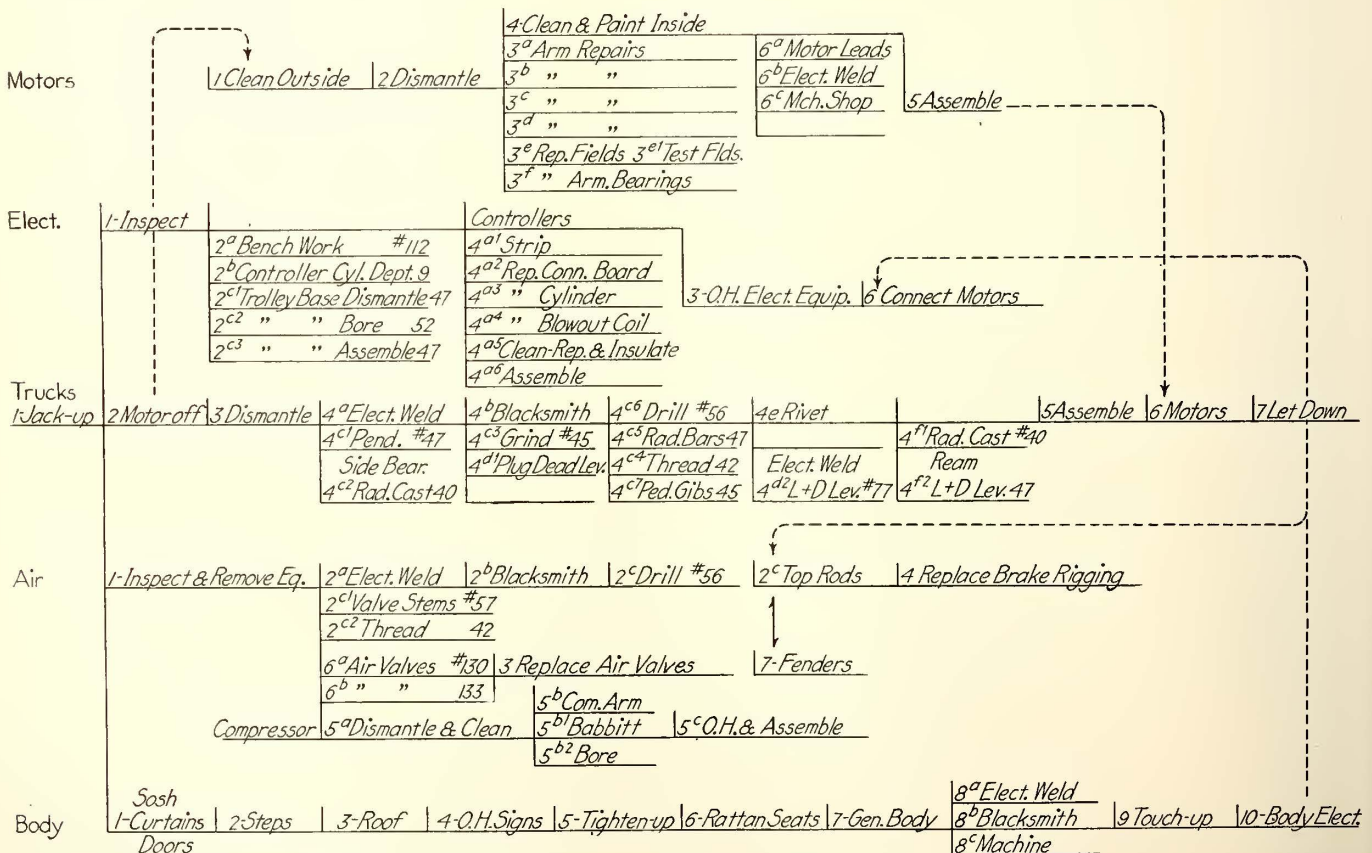 Motors
1 Clean Outside
2 Dismantle
4-Clean & Paint Inside
3a Arm Repairs
3b " "
3c " "
3d " "
3e Rep. Fields 3e1 Test Flds.
3f " Arm. Bearings
6a Motor Leads
6b Elect. Weld
6c Mch. Shop
5 Assemble
Elect.
1-Inspect
2a Bench Work #112
2b Controller Cyl. Dept. 9
2c1 Trolley Base Dismantle 47
2c2 " " Bore 52
2c3 " " Assemble 47
Controllers
4a1 Strip
4a2 Rep. Conn. Board
4a3 " Cylinder
4a4 " Blowout Coil
4a5 Clean-Rep. & Insulate
4a6 Assemble
3-O.H. Elect. Equip.
6 Connect Motors
Trucks
1-Jack-up
2 Motor off
3 Dismantle
4a Elect. Weld
4c1 Pend. #47
Side Bear.
4c2 Rad. Cast 40
4b Blacksmith
4c3 Grind #45
4d1 Plug Dead Lev.
4c6 Drill #56
4c5 Rad. Bars 47
4c4 Thread 42
4c7 Ped. Gibs 45
4e Rivet
Elect. Weld
4d2 L+D Lev. #77
4f1 Rad. Cast #40
Ream
4f2 L+D Lev. 47
5 Assemble
6 Motors
7 Let Down
Air
1-Inspect & Remove Eq.
2a Elect. Weld
2b Blacksmith
2c Drill #56
2c Top Rods
4 Replace Brake Rigging
2c1 Valve Stems #57
2c2 Thread 42
6a Air Valves #130
6b " " 133
3 Replace Air Valves
7-Fenders
Compressor
5a Dismantle & Clean
5b Com. Arm
5b1 Babbitt
5b2 Bore
5c O.H. & Assemble
Body
Sosh
1-Curtains
Doors
2-Steps
3-Roof
4-O.H. Signs
5-Tighten-up
6-Rattan Seats
7-Gen. Body
8a Elect. Weld
8b Blacksmith
8c Machine
9 Touch-up
10-Body Elect.